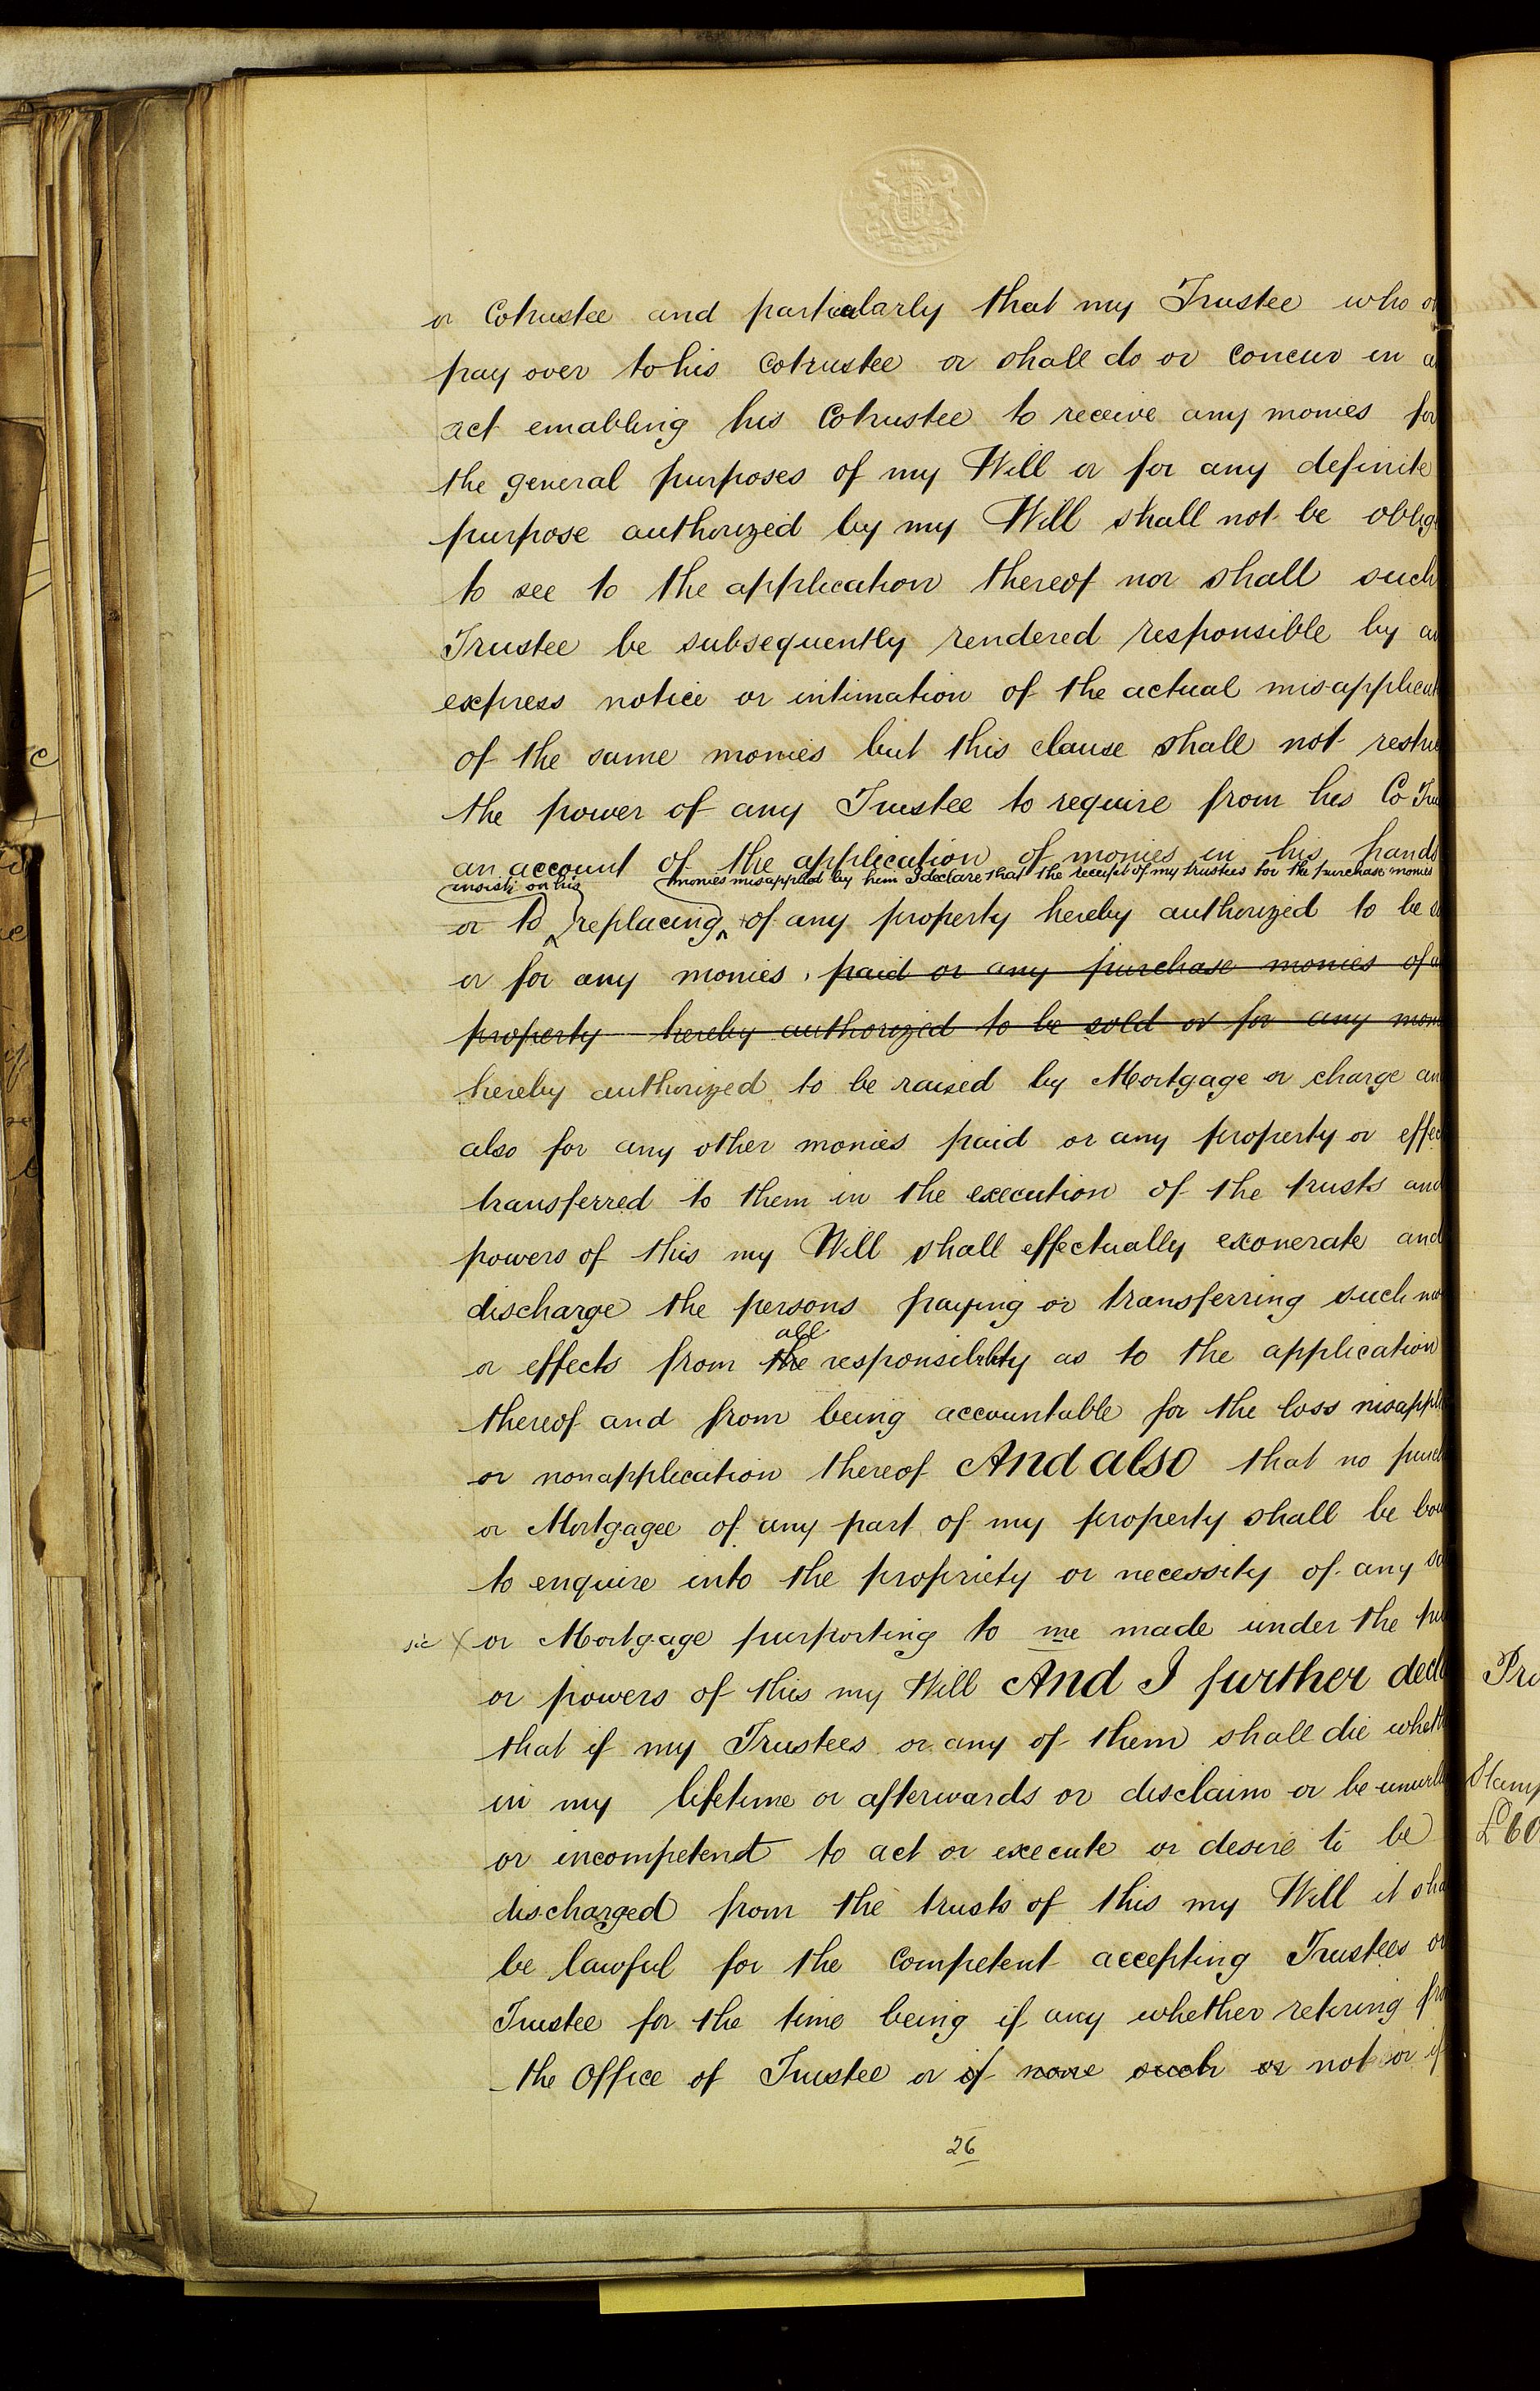 or Cotrustee and particularly that my Trustee who
pay over to his Cotrustee or shall do or concur in
act enabling his Cotrustee to receive any monies for
the general purposes of my Will or for any definite
purpose authorized by my Will shall not be oblig
to see to the application thereof nor shall such
Trustee be subsequently rendered responsible by a
express notice or intimation of the actual misapplicat
of the same monies but this clause shall not restri
the power of any Trustee to require from his Co Tru
an account of the application of monies in his hands
insist on his monies misapplied by him I declare that the receipt of my trustees for the purchase monies
or to replacing of any property hereby authorized to be s
or for any monies paid or any purchase monies of a
property hereby authorized to be sold or for any mon
hereby authorized to be raised by Mortgage or charge an
also for any other monies paid or any property or effec
transferred to them in the execution of the trusts and
powers of this my Will shall effectually exonerate and
discharge the persons paying or transferring such mo
all
or effects from the responsibility as to the application
thereof and from being accountable for the loss misappli
or nonapplication thereof And also that no purch
or Mortgagee of any part of my property shall be bou
to enquire into the propriety or necessity of any sa
sic X or Mortgage purporting to me made under the
or powers of this my Will And I further decla
that if my Trustees or any of them shall die wheth
in my lifetime or afterwards or disclaim or be unwill
or incompetent to act or execute or desire to be
discharged from the trusts of this my Will it sha
be lawful for the competent accepting Trustees or
Trustee for the time being if any whether retiring fro
the Office of Trustee or if none such or not or if
26
Pro
Stamp
£60